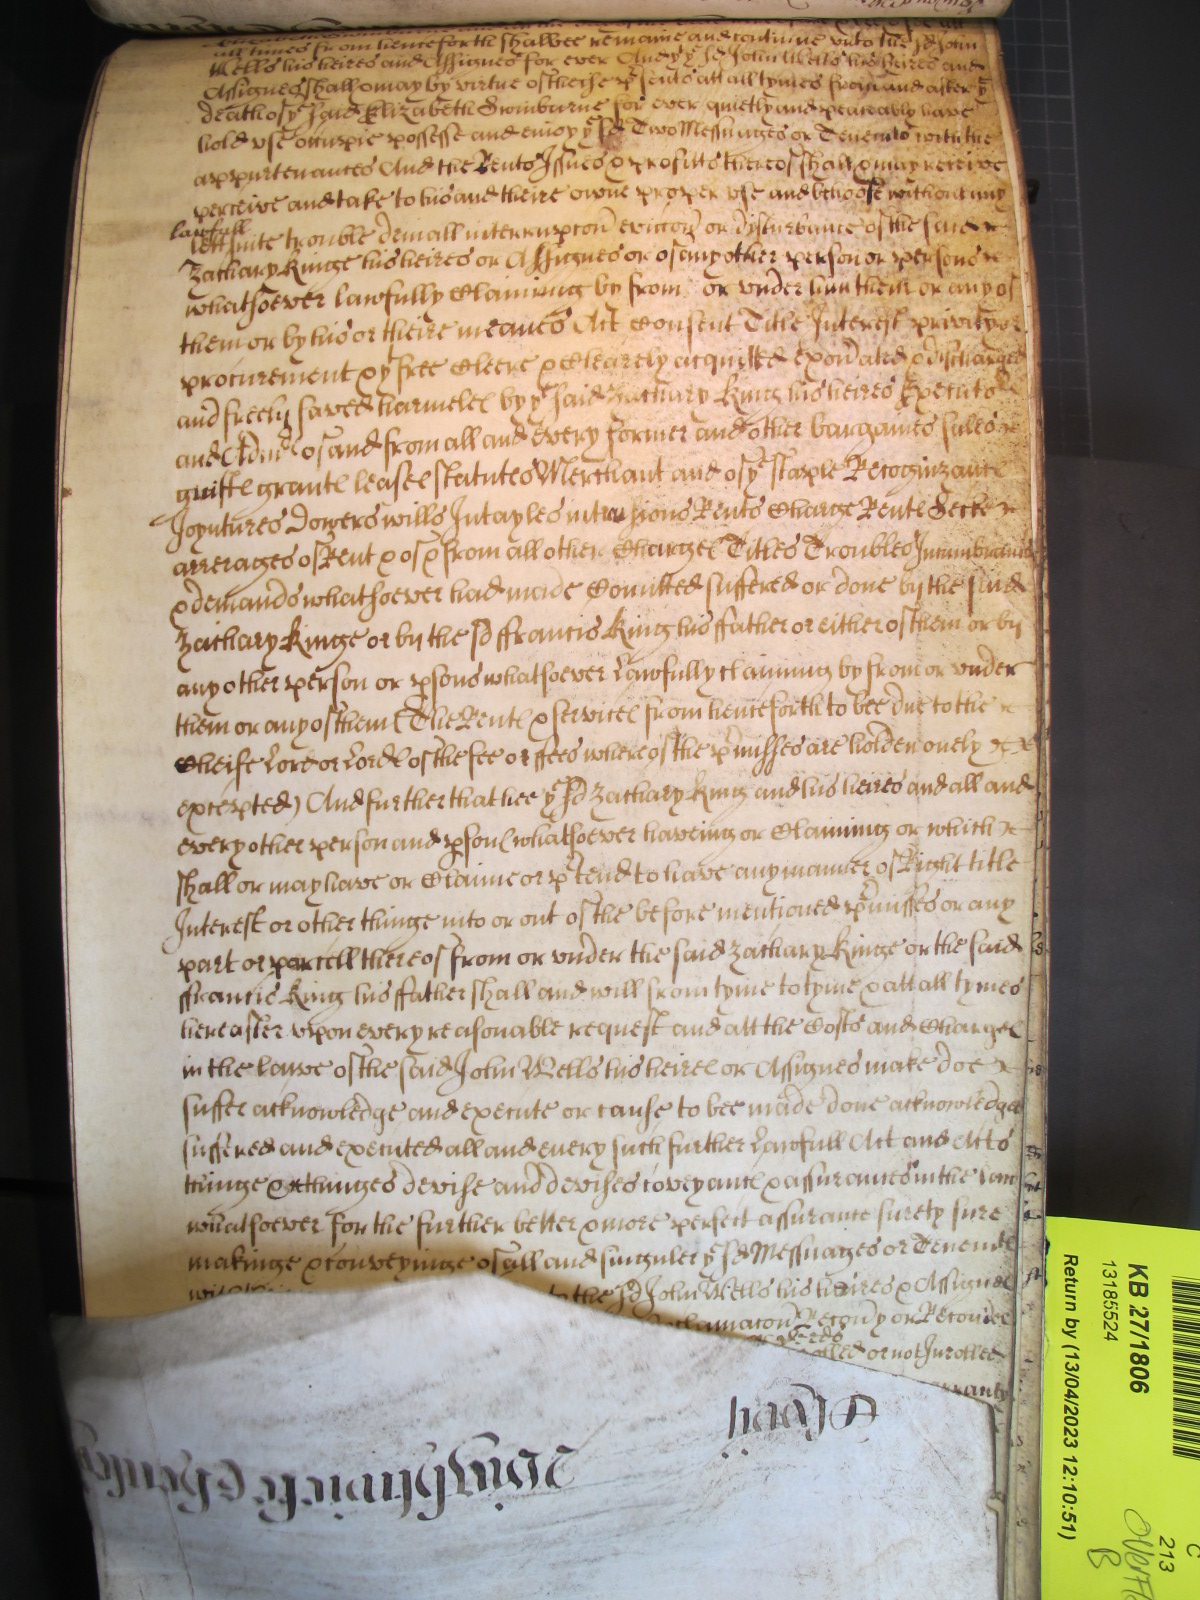 all times from henceforth shalbee remaine and continue vnto the sd John
Wells his heires and Assignes for ever And yt ye sd John Wells his heires and
Assignes shall or may by virtue of these psents att all tymes from and after ye
death of ye said Elizabeth Swinburne for ever quietly and peaceably have
hold vse occupie possesse and enioy ye sd Two Messuages or Tenemts with the
appurtenances And the Rents Issues & profitts thereof shall & may receive
perceive and take to his and theire owne proper vse and behoofe without any
lawfull
lett suite trouble deniall interrupcon eviccon or disturbance of the said
Zachary Kinge his heires or Assignes or of any other person or persons
whatsoever lawfully Claiming by from or vnder him them or any of
them or by his or theire meanes Act Consent Title Interest privity or
procurement & yt free Cleere & Clearely acquitted exonated & discharged
and freely saved harmeles by ye said Zachary King his heires Executors
and Admrs of and from all and every former and other bargaines sales
guiftes grantes leases statutes Merchant and of ye staple Recognizances
Joyntures Dowers wills Intayles intrusions Rents Charge Rentes Secke
arrerages of Rent & of & from all other Charges Titles Troubles Incumbrances
& demands whatsoever had made Comitted suffered or done by the said
Zachary Kinge or by the sd ffrancis King his ffather or either of them or by
any other person or psons whatsoever lawfully claiming by from or vnder
them or any of them (The Rentes & services from henceforth to bee due to the
Cheife Lord or Lordes of the fee or ffees whereof the pmisses are holden onely
excepted) And further that hee ye sd Zachary King and his heires and all and
every other person and psons whatsoever haveing or Claiming or which
shall or may have or Claime or ptend to have any manner of Right title
Interest or other thinge into or out of the before mentioned pmisses or any
part or parcell thereof from or vnder the said Zachary Kinge or the said
ffrancis King his ffather shall and will from tyme to tyme & att all tymes
hereafter vpon every reasonable request and att the Costs and Charges
in the lawe of the said John Wells his heires or Assignes make doe
suffer acknowledge and execute or cause to bee made done acknowledged
suffered and executed all and euery such further Lawfull Act and Acts
thinge & thinges devise and devises coveyances & assurances in the Law
whatsoever for the further better & more perfect assurance surety sure
makinge & conveyinge of all and singuler ye sd Messuages or Tenemts
to the sd John Wells his heires & Assignes
Recouy or Recoues
or not Inrolled
warranty
KB 27/1806
13185524
Return by (13/04/2023 12:10:51)
213